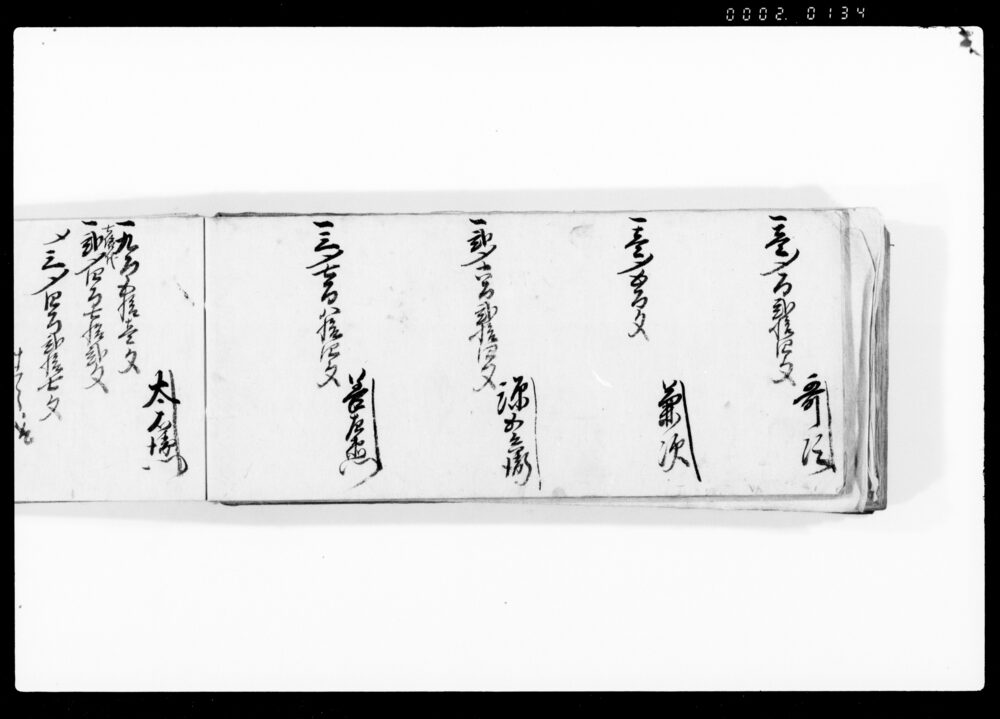 0002.0134
一壱〆百弐拾四文
哥次
一壱〆五百文
兼次
一弐〆六百弐拾四文
源五兵衛
一三〆七百八拾四文
善左衛門
一九百五拾壱文
太左衛門
一弐〆四百七拾弐文
〆三〆四百弐拾七文